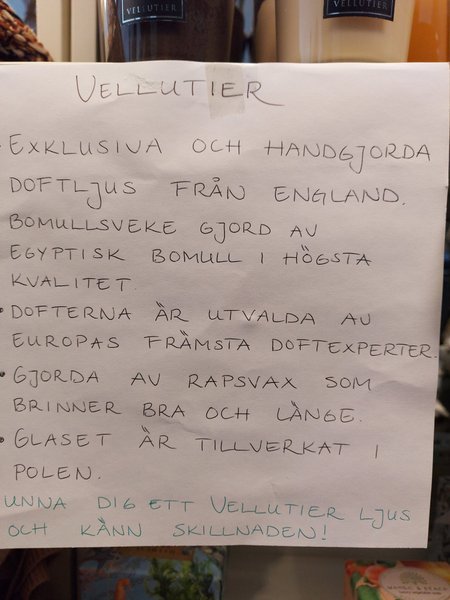 VELLUTIER
VELLUTIER
VELLUTIER
• EXKLUSIVA OCH HANDGJORDA
DOFTLJUS FRÅN ENGLAND.
BOMULLSVEKE GJORD AV
EGYPTISK BOMULL I HÖGSTA
KVALITET.
• DOFTERNA ÄR UTVALDA AV
EUROPAS FRÄMSTA DOFTEXPERTER.
• GJORDA AV RAPSVAX SOM
BRINNER BRA OCH LÄNGE.
• GLASET ÄR TILLVERKAT I
POLEN.
UNNA DIG ETT VELLUTIER LJUS
OCH KÄNN SKILLNADEN!